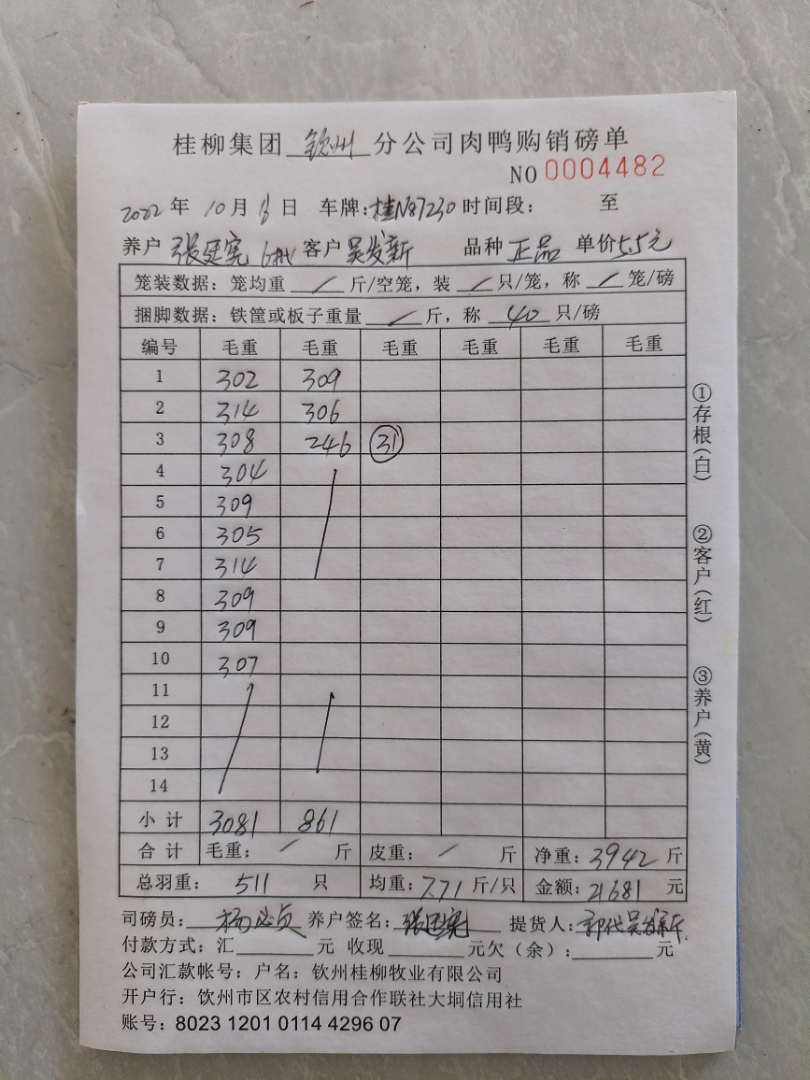 桂柳集团 钦州 分公司肉鸭购销磅单
NO 0004482
2022 年 10 月 日 车牌:桂N87230 时间段: 至
养户 张廷宪 6批 客户 吴发新 品种 正品 单价 5.5元
笼装数据:笼均重 / 斤/空笼,装 / 只/笼,称 / 笼/磅
捆脚数据:铁筐或板子重量 / 斤,称 40 只/磅
编号 毛重 毛重 毛重 毛重 毛重 毛重
1 302 309
2 314 306
3 308 246 31
4 304
5 309
6 305
7 314
8 309
9 309
10 307
11
12
13
14
小计 3081 861
合计 毛重: / 斤 皮重: / 斤 净重: 3942 斤
总羽重: 511 只 均重: 7.71 斤/只 金额: 21681 元
司磅员: 养户签名: 张廷宪 提货人: 郭代吴发新
付款方式:汇 元 收现 元欠(余): 元
公司汇款帐号:户名:钦州桂柳牧业有限公司
开户行:钦州市区农村信用合作联社大垌信用社
账号:8023 1201 0114 4296 07
①存根(白)
②客户(红)
③养户(黄)